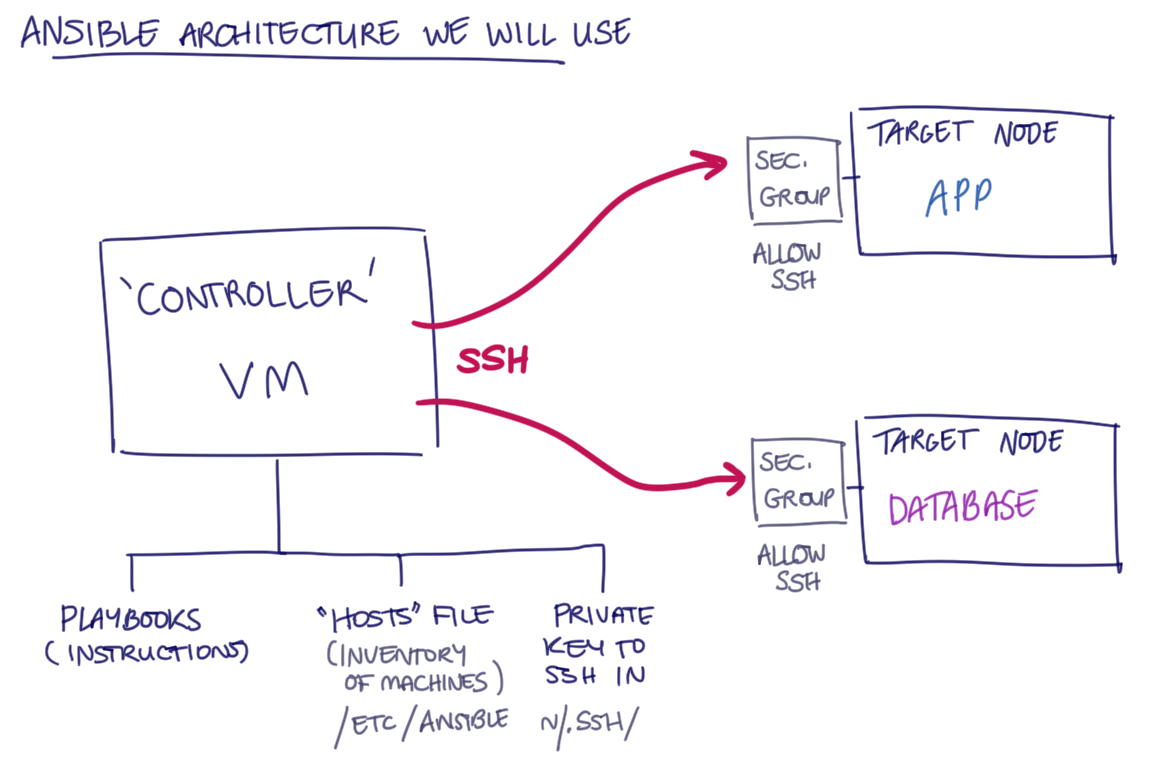 ANSIBLE ARCHITECTURE WE WILL USE
'CONTROLLER'
VM
SSH
SEC.
GROUP
ALLOW
SSH
TARGET NODE
APP
SEC.
GROUP
ALLOW
SSH
TARGET NODE
DATABASE
PLAYBOOKS
(INSTRUCTIONS)
"HOSTS" FILE
(INVENTORY
OF MACHINES)
/ETC/ANSIBLE
PRIVATE
KEY TO
SSH IN
~/.SSH/